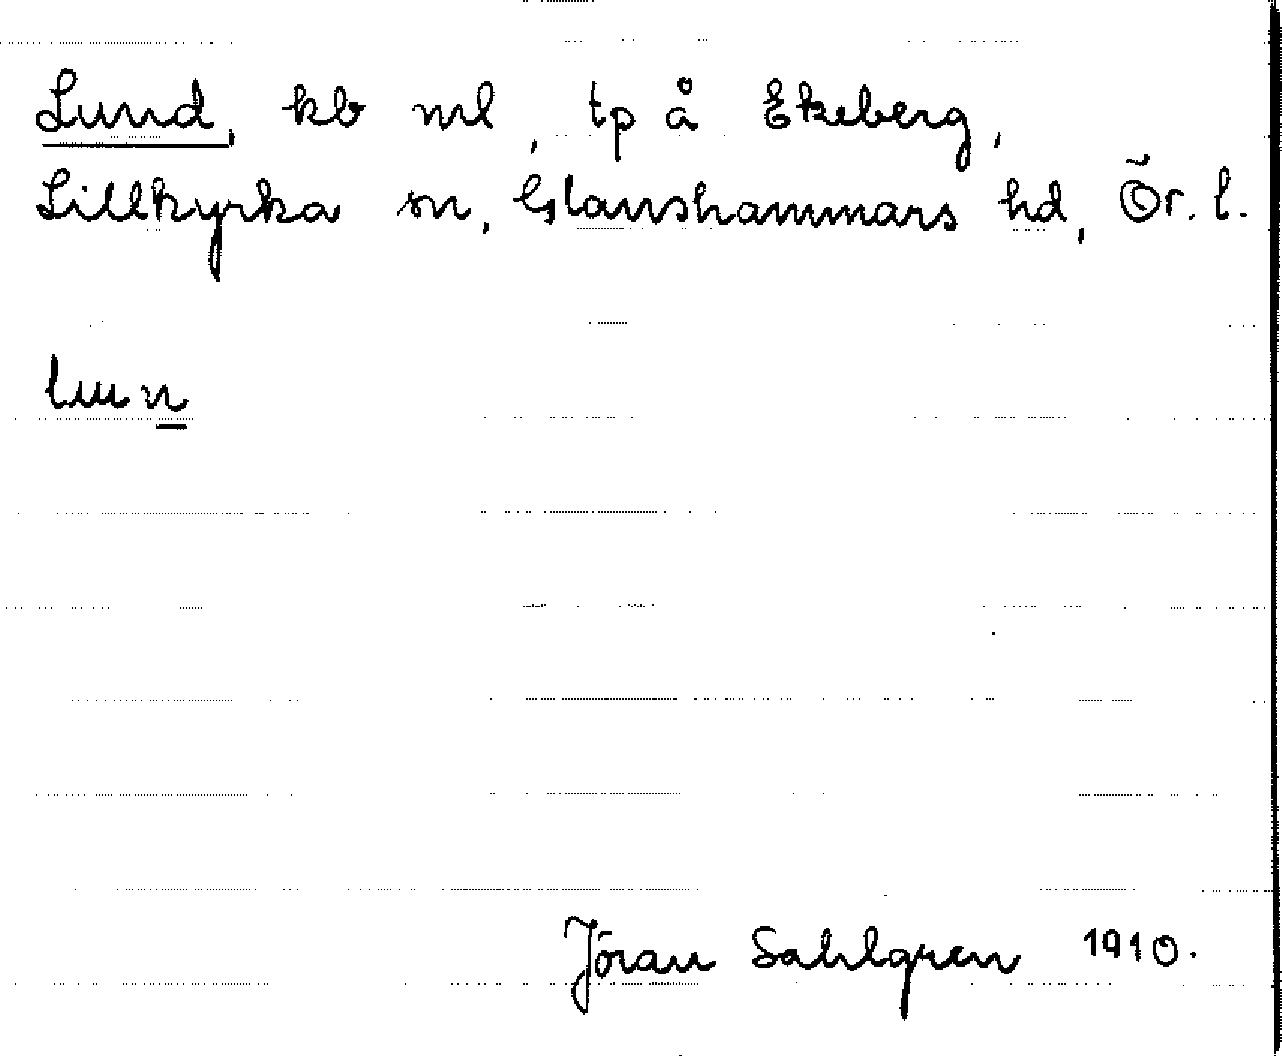 Lund, kb ml, tp å Ekeberg,
Lillkyrka sn, Glanshammars hd, Ör. l.
lun
Jöran Sahlgren 1910.